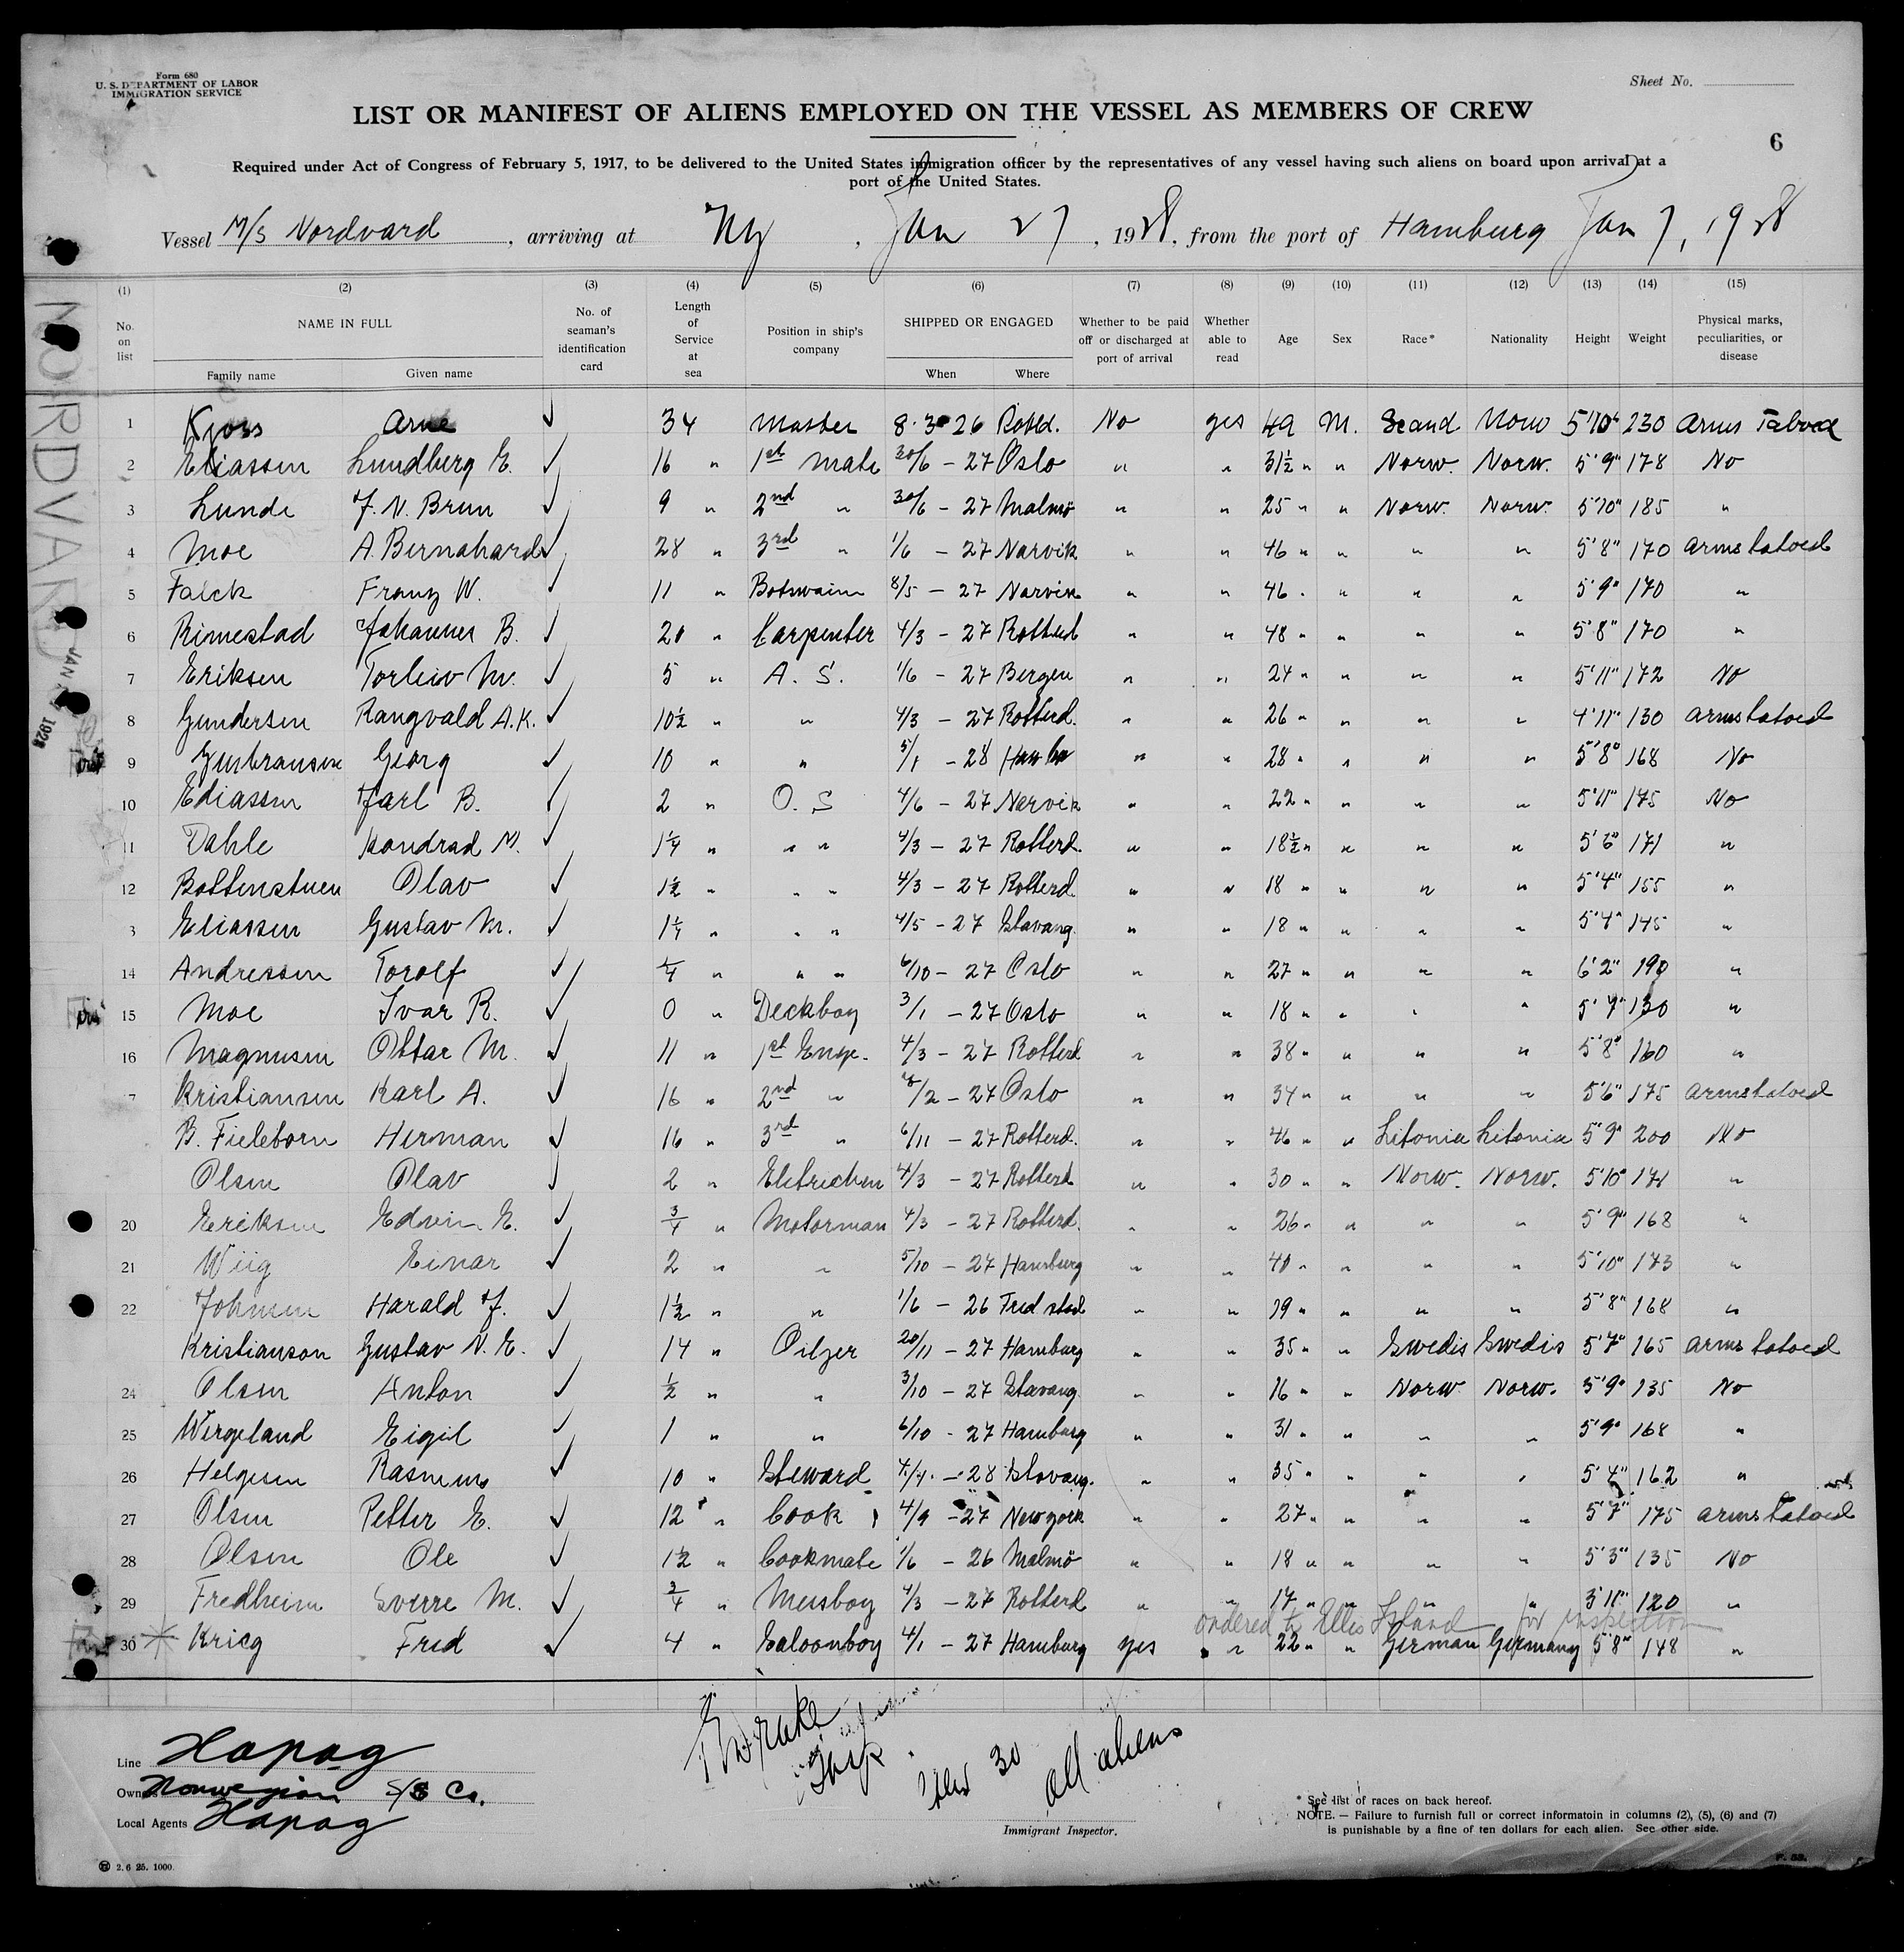 Form 680
U. S. DEPARTMENT OF LABOR
IMMIGRATION SERVICE
Sheet No.
LIST OR MANIFEST OF ALIENS EMPLOYED ON THE VESSEL AS MEMBERS OF CREW
6
Required under Act of Congress of February 5, 1917, to be delivered to the United States immigration officer by the representatives of any vessel having such aliens on board upon arrival at a
port of the United States.
Vessel M/S Nordvard, arriving at Ny, Jan 27, 1928, from the port of Hamburg Jan 7, 1928
(1) (2) (3) (4) (5) (6) (7) (8) (9) (10) (11) (12) (13) (14) (15)
No. on list NAME IN FULL No. of seaman's identification card Length of Service at sea Position in ship's company SHIPPED OR ENGAGED Whether to be paid off or discharged at port of arrival Whether able to read Age Sex Race* Nationality Height Weight Physical marks, peculiarities, or disease
Family name Given name When Where
NORDVARD
JAN 1928
1 Kjoss Arne ✓ 34 Master 8.3 26 Rottd. No yes 49 M. Scand Norw 5'10" 230 Arms Tatooed
2 Eliassen Lundberg E. ✓ 16 " 1st Mate 30/6 - 27 Oslo " " 31½ " " Norw. Norw. 5'9" 178 No
3 Lunde J. N. Brun ✓ 9 " 2nd " 30/6 - 27 Malmö " " 25 " " Norw. Norw. 5'10" 185 "
4 Moe A. Bernahard ✓ 28 " 3rd " 1/6 - 27 Narvik " " 46 " " " " 5'8" 170 arms tatoed
5 Falck Franz W. ✓ 11 " Botswain 8/5 - 27 Narvik " " 46 " " " " 5'9" 170 "
6 Rimestad Johannes B. ✓ 20 " Carpenter 4/3 - 27 Rotterd " " 48 " " " " 5'8" 170 "
7 Eriksen Torleiv M. ✓ 5 " A. S. 1/6 - 27 Bergen " " 24 " " " " 5'11" 172 No
8 Gundersen Rangvald A.K. ✓ 10½ " " 4/3 - 27 Rotterd. " " 26 " " " " 4'11" 130 arms tatoed
9 Georg ✓ 10 " " 5/1 - 28 " " 28 " " " " 5'8" 168 No
10 Ediassen Jarl B. ✓ 2 " O. S 4/6 - 27 Narvik " " 22 " " " " 5'11" 175 No
11 Dahle Kondrad M. ✓ 1¼ " " " 4/3 - 27 Rotterd. " " 18½ " " " " 5'6" 171 "
12 Bottenstuen Olav ✓ 1½ " " " 4/3 - 27 Rotterd. " " 18 " " " " 5'4" 155 "
3 Eliassen Gustav M. ✓ 1¼ " " " 4/5 - 27 Stavang. " " 18 " " " " 5'4" 145 "
14 Andressen Torolf ✓ ¼ " " " 6/10 - 27 Oslo " " 27 " " " " 6'2" 190 "
15 Moe Ivar R. ✓ 0 " Deckboy 3/1 - 27 Oslo " " 18 " " " " 5'7" 130 "
16 Magnusen Ottar M. ✓ 11 " 1st Enge. 4/3 - 27 Rotterd " " 38 " " " " 5'8" 160 "
7 Kristiansen Karl A. ✓ 16 " 2nd " /2 - 27 Oslo " " 34 " " " " 5'6" 175 arms tatoed
B. Fieleborn Herman ✓ 16 " 3rd " 6/11 - 27 Rotterd. " " 46 " " Litonia Litonia 5'9" 200 No
Olsen Olav ✓ 2 " Eletrichen 4/3 - 27 Rotterd " " 30 " " Norw. Norw. 5'10" 171 "
20 Eriksen Edvin E. ✓ ¾ " Motorman 4/3 - 27 Rotterd. " " 26 " " " " 5'9" 168 "
21 Wiig Einar ✓ 2 " " 5/10 - 27 Hamburg " " 40 " " " " 5'10" 173 "
22 Johnsen Harald J. ✓ 1½ " " 1/6 - 26 Fredstad " " 19 " " " " 5'8" 168 "
Kristianson Gustav N. E. ✓ 14 " Oilger 20/11 - 27 Hamburg " " 35 " " Swedis Swedis 5'7" 165 arms tatoed
24 Olsen Anton ✓ ½ " " 3/10 - 27 Stavang. " " 16 " " Norw. Norw. 5'9" 135 No
25 Wergeland Eigil ✓ 1 " " 6/10 - 27 Hamburg " " 31 " " " " 5'9" 168 "
26 Helgesen Rasmus ✓ 10 " Steward 4/1 - 28 Stavang. " " 35 " " " " 5'4" 162 "
27 Olsen Petter E. ✓ 12 " Cook 4/9 - 27 New york " " 27 " " " " 5'7" 175 arms tatoed
28 Olsen Ole ✓ 1½ " Cookmate 1/6 - 26 Malmö " " 18 " " " " 5'3" 135 No
29 Fredheim Sverre M. ✓ ¾ " Messboy 4/3 - 27 Rotterd " " 17 " " " " 3'11" 120 "
ordered to Ellis Island for inspection
30 Krieg Fred ✓ 4 " Saloonboy 4/1 - 27 Hamburg yes " 22 " " German Germany 5'8" 148 "
Line Hapag
Owners Norwegian S/S Co.
Local Agents Hapag
Drake
Insp
Crew 30
all aliens
Immigrant Inspector.
* See list of races on back hereof.
NOTE. — Failure to furnish full or correct informatoin in columns (2), (5), (6) and (7)
is punishable by a fine of ten dollars for each alien. See other side.
2. 6 25. 1000.